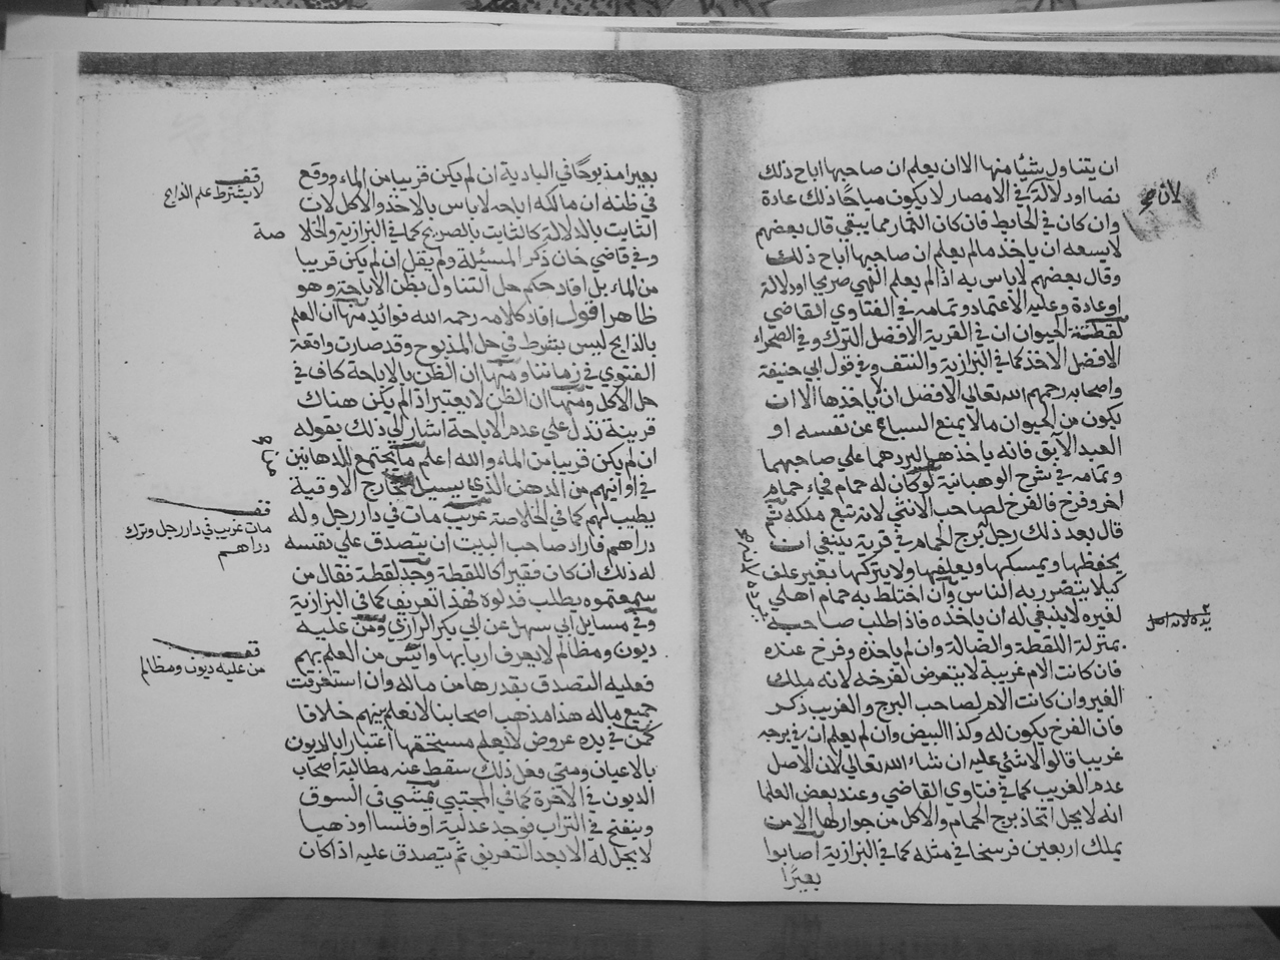 ان يتناول شيئا منها الا ان يعلم ان صاحبها اباح ذلك
نصا او دلالة في الامصار لا يكون مباحا ذلك عادة
لان
وان كان في الحايط فان كان الثمار مما يبقي قال بعضهم
لا يسعه ان ياخذ مالم يعلم ان صاحبها اباح ذلك
وقال بعضهم لاباس به اذا لم يعلم النهي صريحا او دلالة
او عادة وعليه الاعتماد وتمامه في الفتاوي القاضي
لقطة الحيوان ان في القرية الافضل الترك وفي الصحراء
الافضل الاخذ كما في البزازية والنتف وفي قول ابي حنيفة
واصحابه رحمهم الله تعالي الافضل ان لا ياخذها الا ان
يكون من الحيوان مالا يمنع السباع عن نفسه او
العبد الآبق فانه ياخذهما ليردهما علي صاحبهما
وتمامه في شرح الوهبانية لو كان له حمام فجاء حمام
اخر وفرخ فالفرخ لصاحب الانثي لانه تبع ملكه ثم
قال بعد ذلك رجل برج الحمام في قرية ينبغي ان
يحفظها ويمسكها ويعلفها ولا يتركها بغير علف
كيلا يتضرر به الناس وان اختلط به حمام اهلي
لغيره لا ينبغي له ان ياخذه فاذا طلب صاحبه
بمنزلة اللقطة والضالة وان لم ياخذه وفرخ عنده
فان كانت الام غريبة لا يتعرض لفرخه لانه ملك
الغير وان كانت الام لصاحب البرج والغريب ذكر
فان الفرخ يكون له وكذا البيض وان لم يعلم ان في برجه
غريبا قالوا لا شئي عليه ان شاء الله تعالي لان الاصل
عدم الغريب كما في فتاوي القاضي وعند بعض العلما
انه لا يحل اتخاذ برج الحمام والاكل من جوازلها الا من
يملك اربعين فرسخا في مثله كما في البزازية اصابوا
بعيرا
بعيرا مذبوحا في البادية ان لم يكن قريبا من الماء ووقع
في ظنه ان مالكه اباحه لاباس بالاخذ والاكل لان
الثابت بالدلالة كالثابت بالصريح كما في البزازية والخلا صة
وفي قاضي خان ذكر المسئلة ولم يقل ان لم يكن قريبا
من الماء بل افاد حكم حل التناول بظن الاباحة وهو
ظاهر اقول افاد كلامه رحمه الله فوائد منها ان العلم
بالذابح ليس بشرط في حل المذبوح وقد صارت واقعة
الفتوي في زماننا ومنها ان الظن بالاباحة كاف في
حل الاكل ومنها ان الظن لا يعتبر اذا لم يكن هناك
قرينة تدل علي عدم الاباحة اشار الي ذلك بقوله
ان لم يكن قريبا من الماء والله اعلم ما يجتمع للدهانين
في اوانيهم من الدهن الذي يسيل خارج الاوقية
يطيب لهم كما في الخلاصة غريب مات في دار رجل وله
دراهم فاراد صاحب البيت ان يتصدق علي نفسه
له ذلك ان كان فقيرا كاللقطة وجد لقطة فقال من
سمعتموه يطلب فدلوه فهذا تعريف كما في البزازية
وفي مسايل ابي سهل عن ابي بكر الرازي ومن عليه
ديون ومظالم لا يعرف اربابها وايس من العلم بهم
فعليه التصدق بقدرها من ماله وان استغرقت
جميع ماله هذا مذهب اصحابنا لا نعلم بينهم خلافا
كمن في يده عروض لا يعلم مستحقها اعتبارا بالديون
بالاعيان ومتي فعل ذلك سقط عنه مطالبة اصحاب
الديون في الاخرة كما في المجتبي تمشي في السوق
وينفخ في التراب فوجد عدلية او فلسا او ذهبا
لا يحل له الا بعد التعريف ثم يتصدق عليه اذا كان
قف
لا يشترط علم الذابح
قف
مات غريب في دار رجل وترك
دراهم
قف
من عليه ديون ومظالم